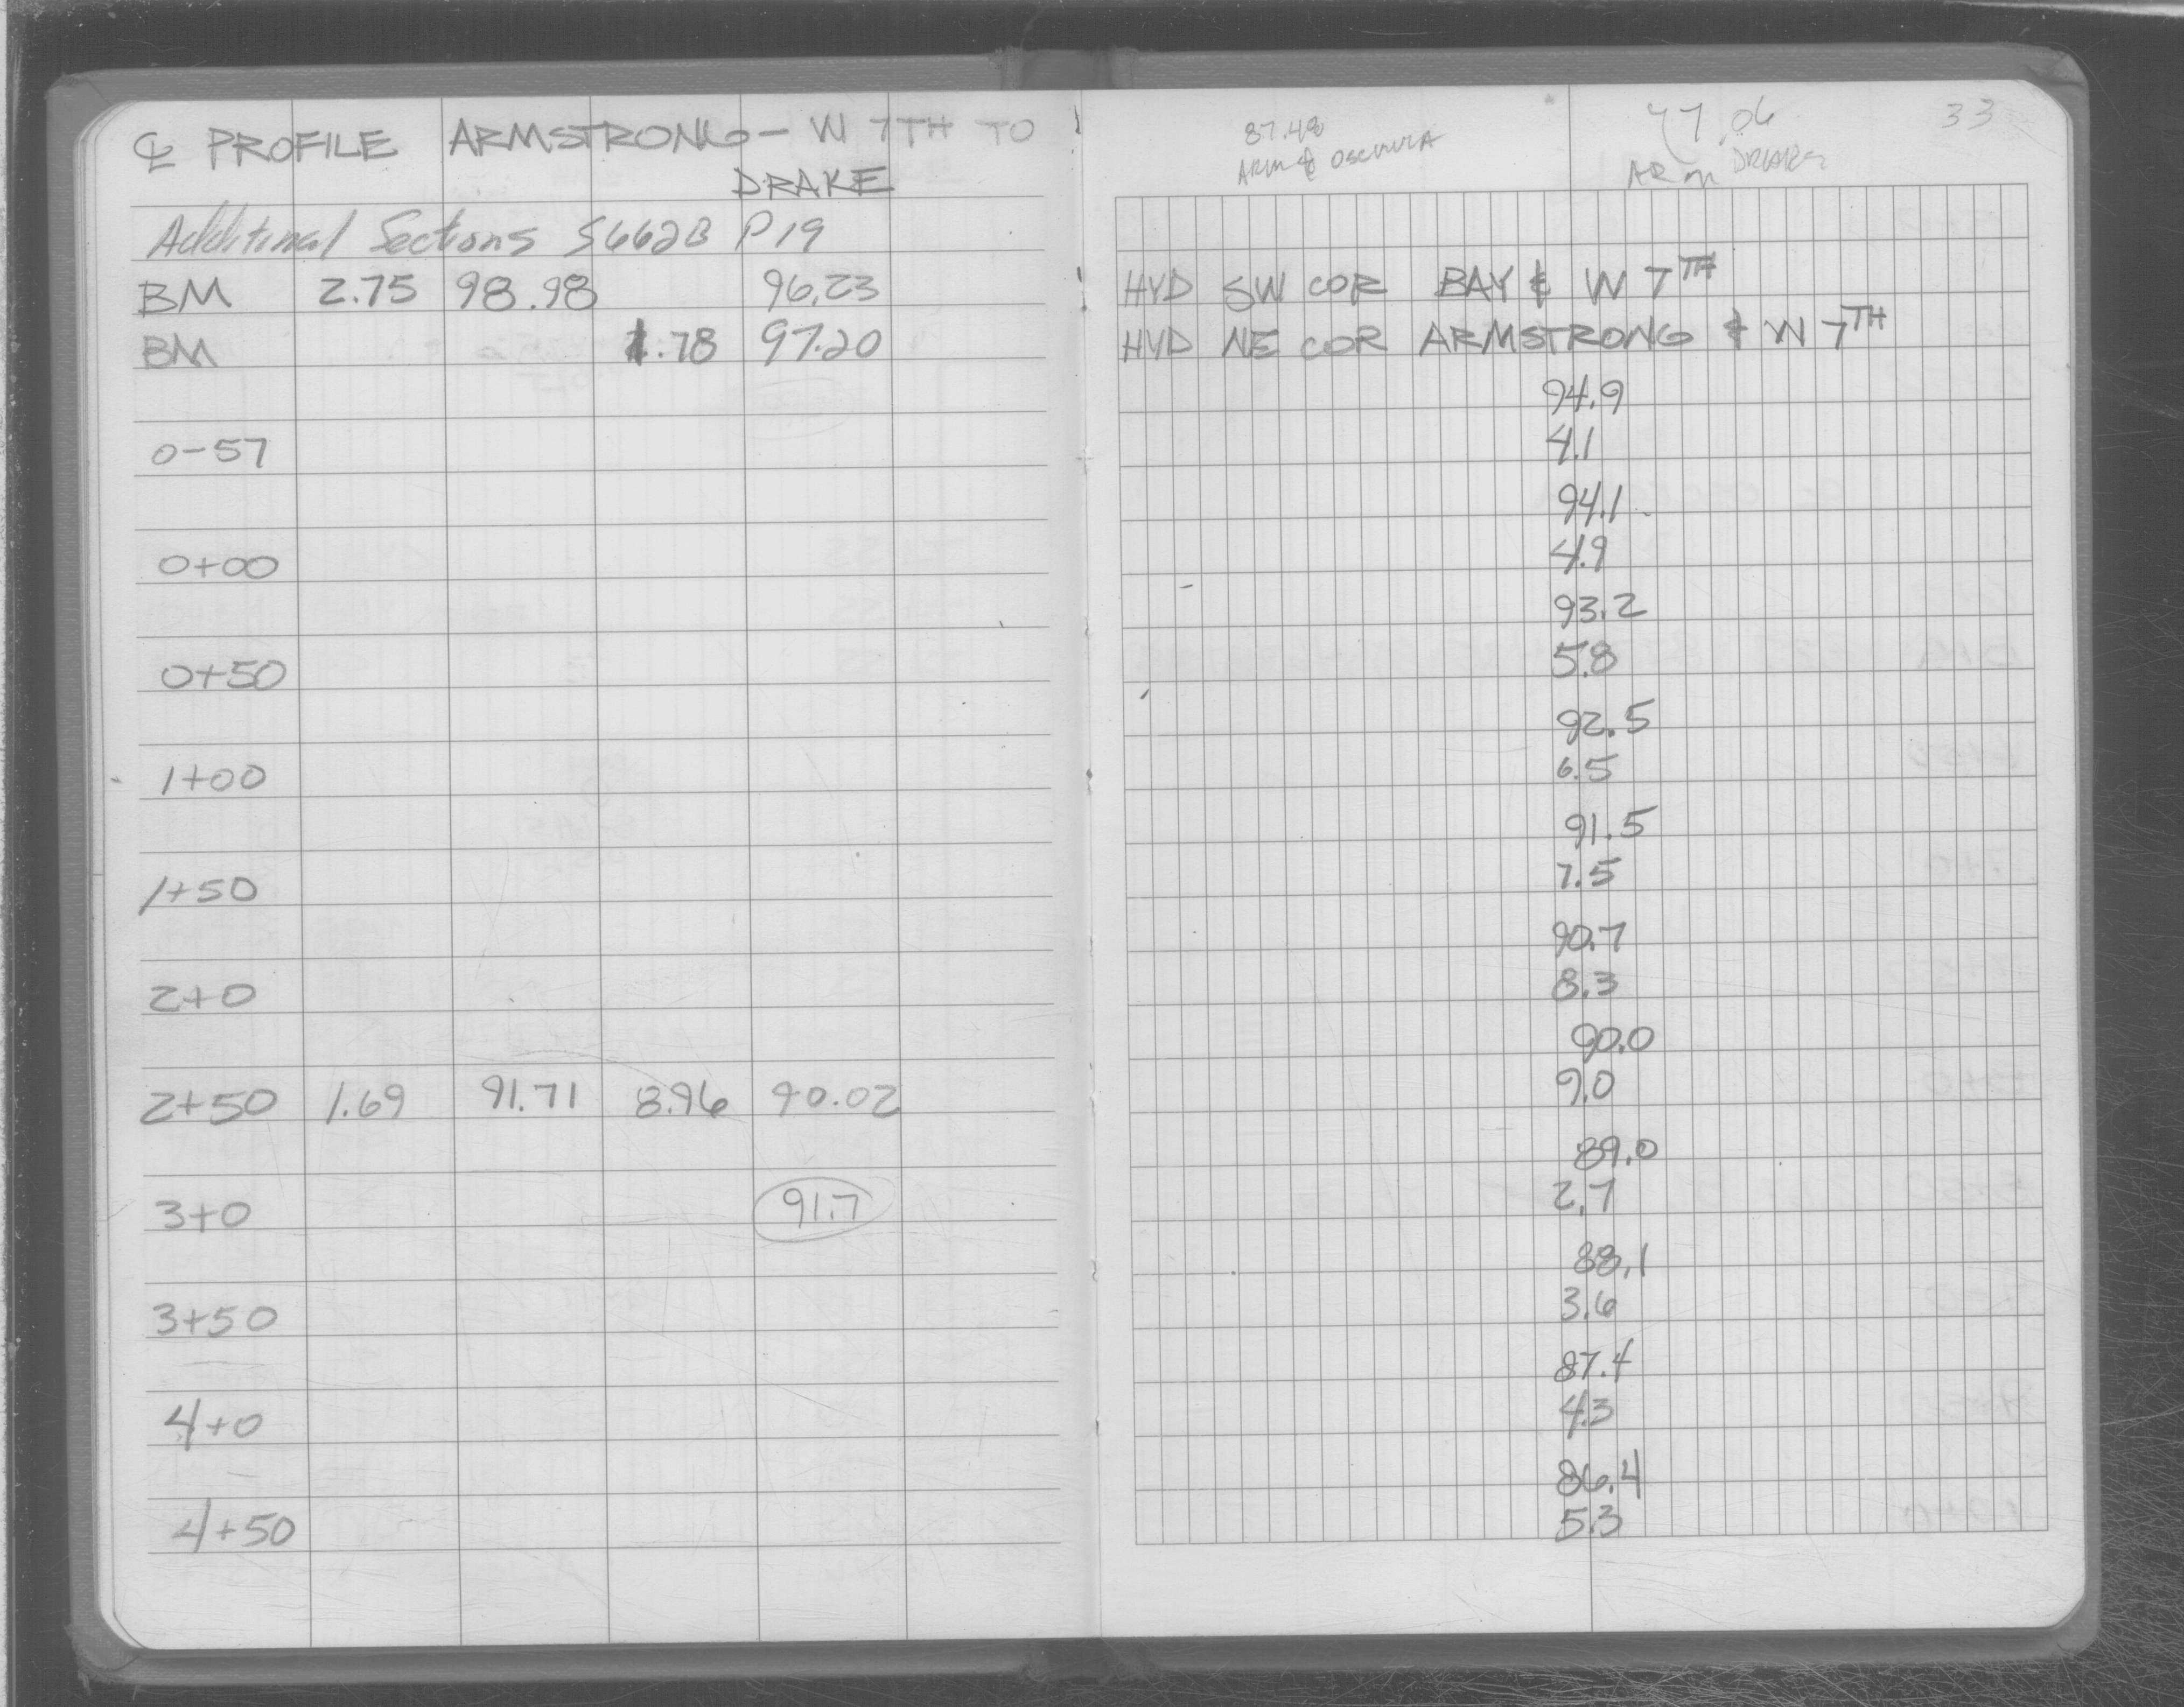 ℄ PROFILE ARMSTRONG - W 7TH TO
DRAKE
Additional Sections S662B P19
BM 2.75 98.98 96.23
BM 1.78 97.20
0-57
0+00
0+50
1+00
1+50
2+0
2+50 1.69 91.71 8.96 90.02
3+0 91.7
3+50
4+0
4+50
87.48
ARM &
77.06
ARM DRAKE
33
HYD SW COR BAY & W 7TH
HYD NE COR ARMSTRONG & W 7TH
94.9
4.1
94.1
4.9
93.2
5.8
92.5
6.5
91.5
7.5
90.7
8.3
90.0
9.0
89.0
2.7
88.1
3.6
87.4
4.3
86.4
5.3